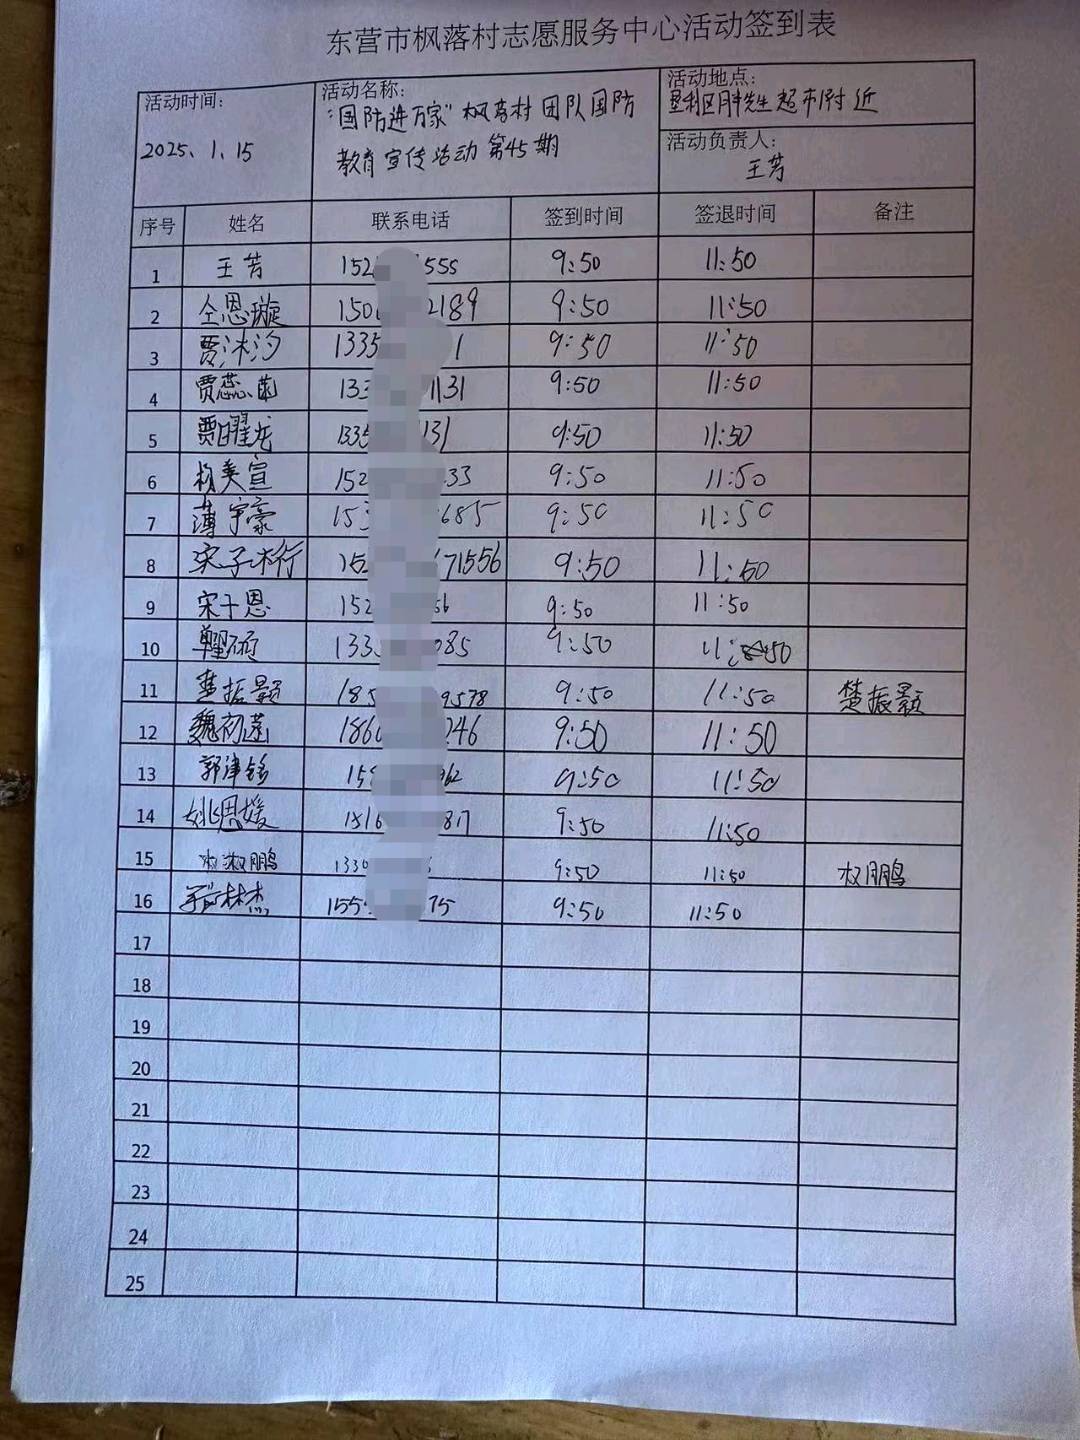 东营市枫落村志愿服务中心活动签到表
活动时间:
2025、1、15
活动名称:
"国防进万家"枫落村团队国防
教育宣传活动 第45期
活动地点:
垦利区胖先生超市附近
活动负责人:
王芳
序号 姓名 联系电话 签到时间 签退时间 备注
1 王芳 152 555 9:50 11:50
2 仝恩璇 150 2189 9:50 11:50
3 贾沐汐 1335 1 9:50 11:50
4 贾蕊菡 133 1131 9:50 11:50
5 贾曜龙 1335 131 9:50 11:50
6 杨美宣 152 33 9:50 11:50
7 薄宇豪 153 685 9:50 11:50
8 宋子沐行 152 71556 9:50 11:50
9 宋千恩 152 56 9:50 11:50
10 133 085 9:50 11:50
11 楚振颢 185 9578 9:50 11:50 楚振颢
12 魏初蕴 186 246 9:50 11:50
13 郭津铭 159 962 9:50 11:50
14 姚恩媛 1516 817 9:50 11:50
15 权鹏 1330 6 9:50 11:50 权鹏
16 林杰 155 75 9:50 11:50
17
18
19
20
21
22
23
24
25